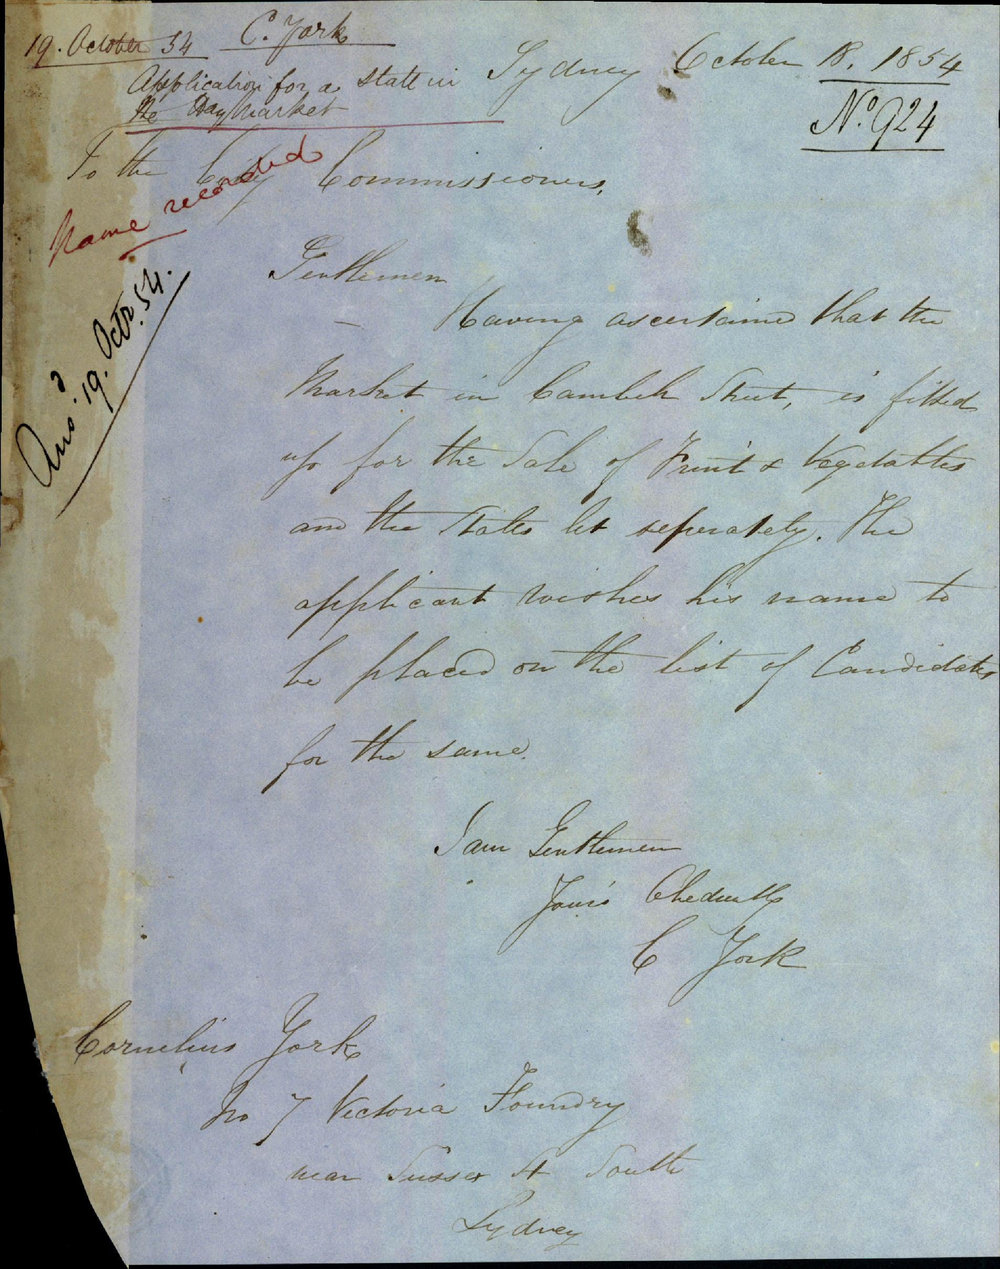 19. October 54 C. York
Application for a stall in
the Haymarket
Sydney October 18. 1854
No. 924
To the City Commissioners,
Name recorded
Ansd. 19. Octr. 54.
Gentlemen
Having ascertained that the
Market in Campbell Street, is fitted
up for the Sale of Fruit & Vegetables
and the Stalls let seperately. The
applicant wishes his name to
be placed on the list of Candidates
for the same.
I am Gentlemen
Yours Obediently
C York
Cornelius York
No 7 Victoria Foundry
near Sussex St South
Sydney